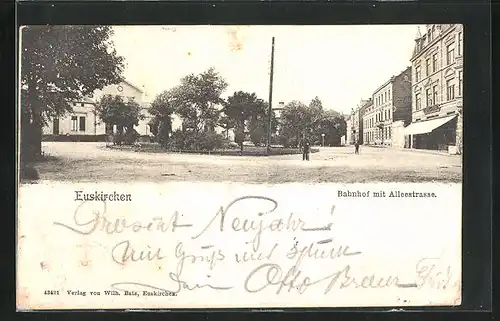 Euskirchen
Bahnhof mit Alleestrasse.
Prosit Neujahr!
Mit Gruß und
Dein Otto
43421 Verlag von Wilh. Batz, Euskirchen.